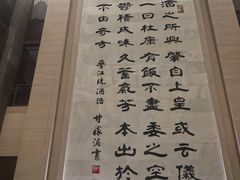 酒之所興肇自上皇或云儀
一曰杜康有飯不盡委之空
鬱積成味久蓄氣芳本出於
不由奇方 晉江統酒誥 甘
書